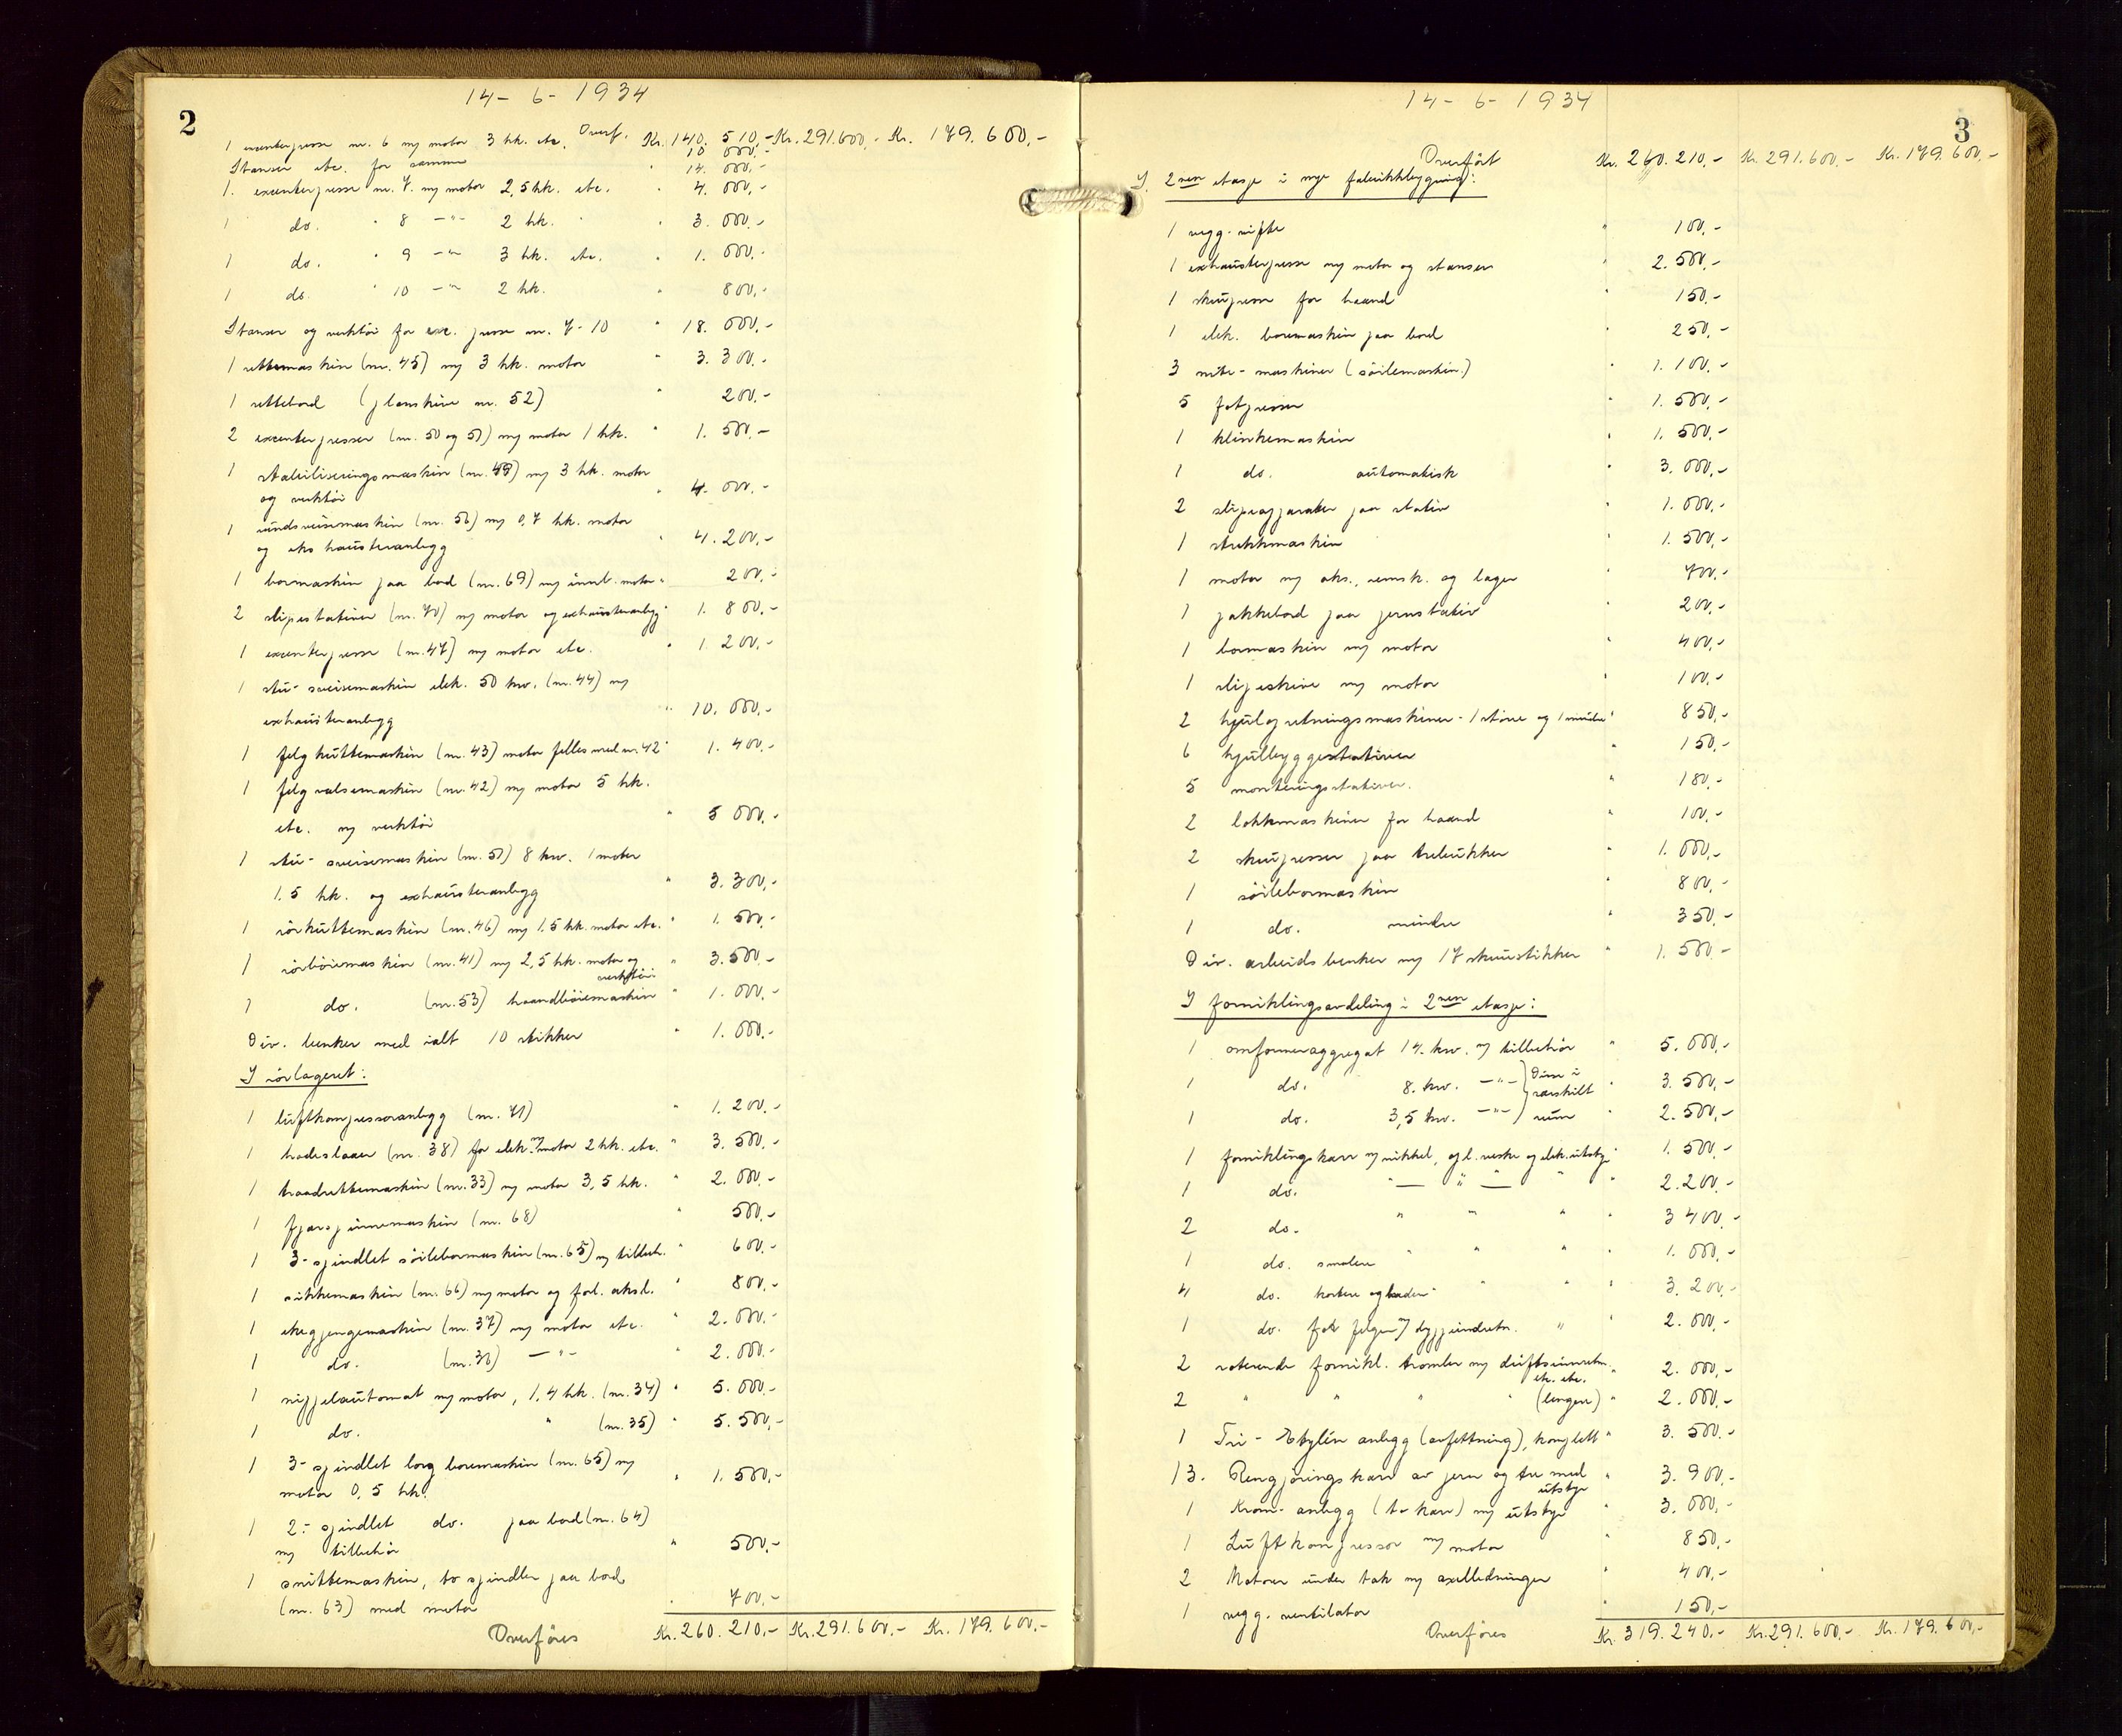 2
14- 6- 1934
Overf. Kr. 140. 510,- Kr. 291.600,- Kr. 179.600,-
1 excenterpresse nr. 6 m/ motor 3 hk. etc. 10 000,-
Stanser etc. for samme 14. 000,-
1. excenterpresse nr. 7. m/ motor 2,5 hk. etc. " 4. 000,-
1 do. " 8 -"- 2 hk. " " 3. 000,-
1 do. " 9 -"- 3 hk. etc. " 1. 000,-
1 do. " 10 -"- 2 hk. " 800,-
Stanser og verktöi for exc. presse nr. 7-10 " 18. 000,-
1 rettemaskin (nr. 45) m/ 3 hk. motor " 3. 300,-
1 rettebord (planskive nr. 52) " 200,-
2 excenterpresser (nr. 50 og 51) m/ motor 1 hk. " 1. 500,-
1 stabiliseringsmaskin (nr. 49) m/ 3 hk. motor
og verktöi " 4. 000,-
1 rundsveisemaskin (nr. 56) m/ 0,7 hk. motor
og ekshausteranlegg " 4. 200,-
1 bormaskin paa bord (nr. 69) m/ innb. motor " 200,-
2 slipestativer (nr. 70) m/ motor og exhausteranlegg " 1. 800,-
1 excenterpresse (nr. 47) m/ motor etc. " 1. 200,-
1 stu-sveisemaskin elek. 50 kw. (nr. 44) m/
exhausteranlegg " 10. 000,-
1 felgkuttemaskin (nr. 43) motor felles med nr. 42 " 1. 400,-
1 felgvalsemaskin (nr. 42) m/ motor 5 hk.
etc. m/ verktöi " 5 000,-
1 stu-sveisemaskin (nr. 51) 8 kw. 1 motor
1.5 hk. og exhausteranlegg " 3. 300,-
1 rörkuttemaskin (nr. 46) m/ 1.5 hk. motor etc. " 1. 500,-
1 rörböiemaskin (nr. 41) m/ 2,5 hk. motor og verktöi " 3. 500,-
1 do. (nr. 53) haandböiemaskin " 1. 000,-
Div. benker med ialt 10 stikker " 1. 000,-
I rörlageret:
1 luftkompressoranlegg (nr. 71) " 1. 200,-
1 hodeslaaer (nr. 38) for elek. m/ motor 2 hk. etc. " 3. 500,-
1 traadrettemaskin (nr. 33) m/ motor 3,5 hk. " 2. 000,-
1 fjærspinnemaskin (nr. 68) " 500,-
1 3-spindlet söilebormaskin (nr. 65) m/ tilbeh. " 600,-
1 sikkemaskin (nr. 66) m/ motor og forl. aksel. " 800,-
1 ekegjengemaskin (nr. 37) m/ motor etc. " 2. 000,-
1 do. (nr. 36) -"- " 2. 000,-
1 nippelautomat m/ motor, 1,4 hk. (nr. 34) " 5. 000,-
1 do. " (nr. 35) " 5. 500,-
1 3-spindlet lang boremaskin (nr. 65) m/
motor 0,5 hk. " 1. 500,-
1 2-spindlet do. paa bord (nr. 64)
m/ tilbehör " 500,-
1 snittemaskin, to spindler paa bord
(nr. 63) med motor " 700,-
Overföres Kr. 260. 210,- Kr. 291. 600,- Kr. 179. 600,-
3
14- 6- 1934
Overfört Kr. 260. 210,- Kr. 291. 600,- Kr. 179. 600,-
I. 2nen etasje i nye fabrikkbygning:
1 vegg-vifte " 100,-
1 exhausterpresse m/ motor og stanser " 2. 500,-
1 skrupresse for haand " 150,-
1 elek. boremaskin paa bord " 250,-
3 nitte-maskiner (söilemaskin.) " 1. 100,-
5 fotpresser " 1. 500,-
1 klinkemaskin " 1. 500,-
1 do. automatisk " 3. 000,-
2 slipeapparater paa stativ " 1. 000,-
1 strekkmaskin " 1. 500,-
1 motor m/ aks., remsk. og lager " 700,-
1 pakkebord paa jernstativ " 200,-
1 bormaskin m/ motor " 400,-
1 slipeskive m/ motor " 100,-
2 hjulopretningsmaskiner - 1 större og 1 mindre " 850,-
6 hjulbyggestativer " 150,-
5 monteringsstativer. " 180,-
2 lokkmaskiner for haand " 100,-
2 skrupresser paa trebukker " 1. 000,-
1 söilebormaskin " 800,-
1 do. mindre " 350,-
Div. arbeidsbenker m/ 17 skruestikker " 1. 500,-
I fornikling­savdeling i 2nen etasje:
1 omformeraggregat 14. kw. m/ tilbehör " 5. 000,-
1 do. 8. kw. -"- } Disse i særskilt " 3. 500,-
1 do. 3,5 kw. -"- } rum " 2. 500,-
1 forniklingskarr m/ nikkel, opl. veske og elek. utstyr " 1. 500,-
1 do. "— " — " " 2. 200,-
2 do. " " " " 3 400,-
1 do. smalere " " " " 1. 000,-
4 do. kortere og " " " 3. 200,-
1 do. for felger m/ dyppeindretn. " " 2. 000,-
2 roterende fornikl. tromler m/ driftsinnretn. etc. etc. " 2. 000,-
2 " " " " (lengere) " 2. 000,-
1 Tri-Etylén anlegg (avfettning), komplett " 3. 500,-
13. Rengjöringskarr av jern og tre med utstyr " 3. 900,-
1 Krom-anlegg (to karr) m/ utstyr " 3. 000,-
1 Luftkompressor m/ motor " 850,-
2 Motorer under tak m/ axelledninger " 400,-
1 vegg-ventilator " 150,-
Overföres Kr. 319. 240,- Kr. 291. 600,- Kr. 179. 600,-